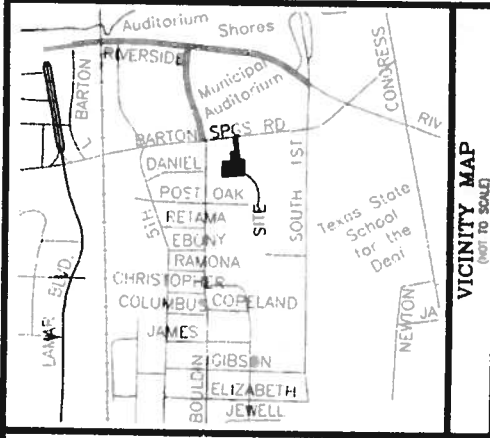 Auditorium Shores
RIVERSIDE
BARTON
Municipal
Auditorium
CONGRESS
RIV
BARTON SPGS RD
DANIEL
POST OAK
5TH
RETAMA
EBONY
RAMONA
CHRISTOPHER
COLUMBUS
COPELAND
JAMES
GIBSON
ELIZABETH
JEWELL
BOULDIN
SITE
SOUTH 1ST
Texas State
School
for the
Deni
NEWTON
JA
LAMAR BLVD.
VICINITY MAP
(NOT TO SCALE)